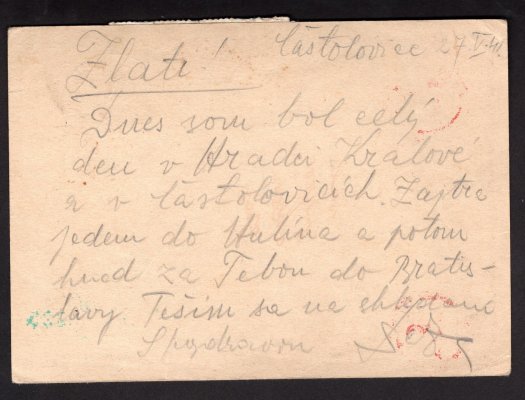 Častolovice 27 V. 41.
Zlatí!
Dnes som bol celý
den v Hradci Králové
a v Častolovicích. Zajtra
jedem do Hulína a potom
hneď za Tebou do Bratis-
lavy Teším sa na shledanú
S pozdravom